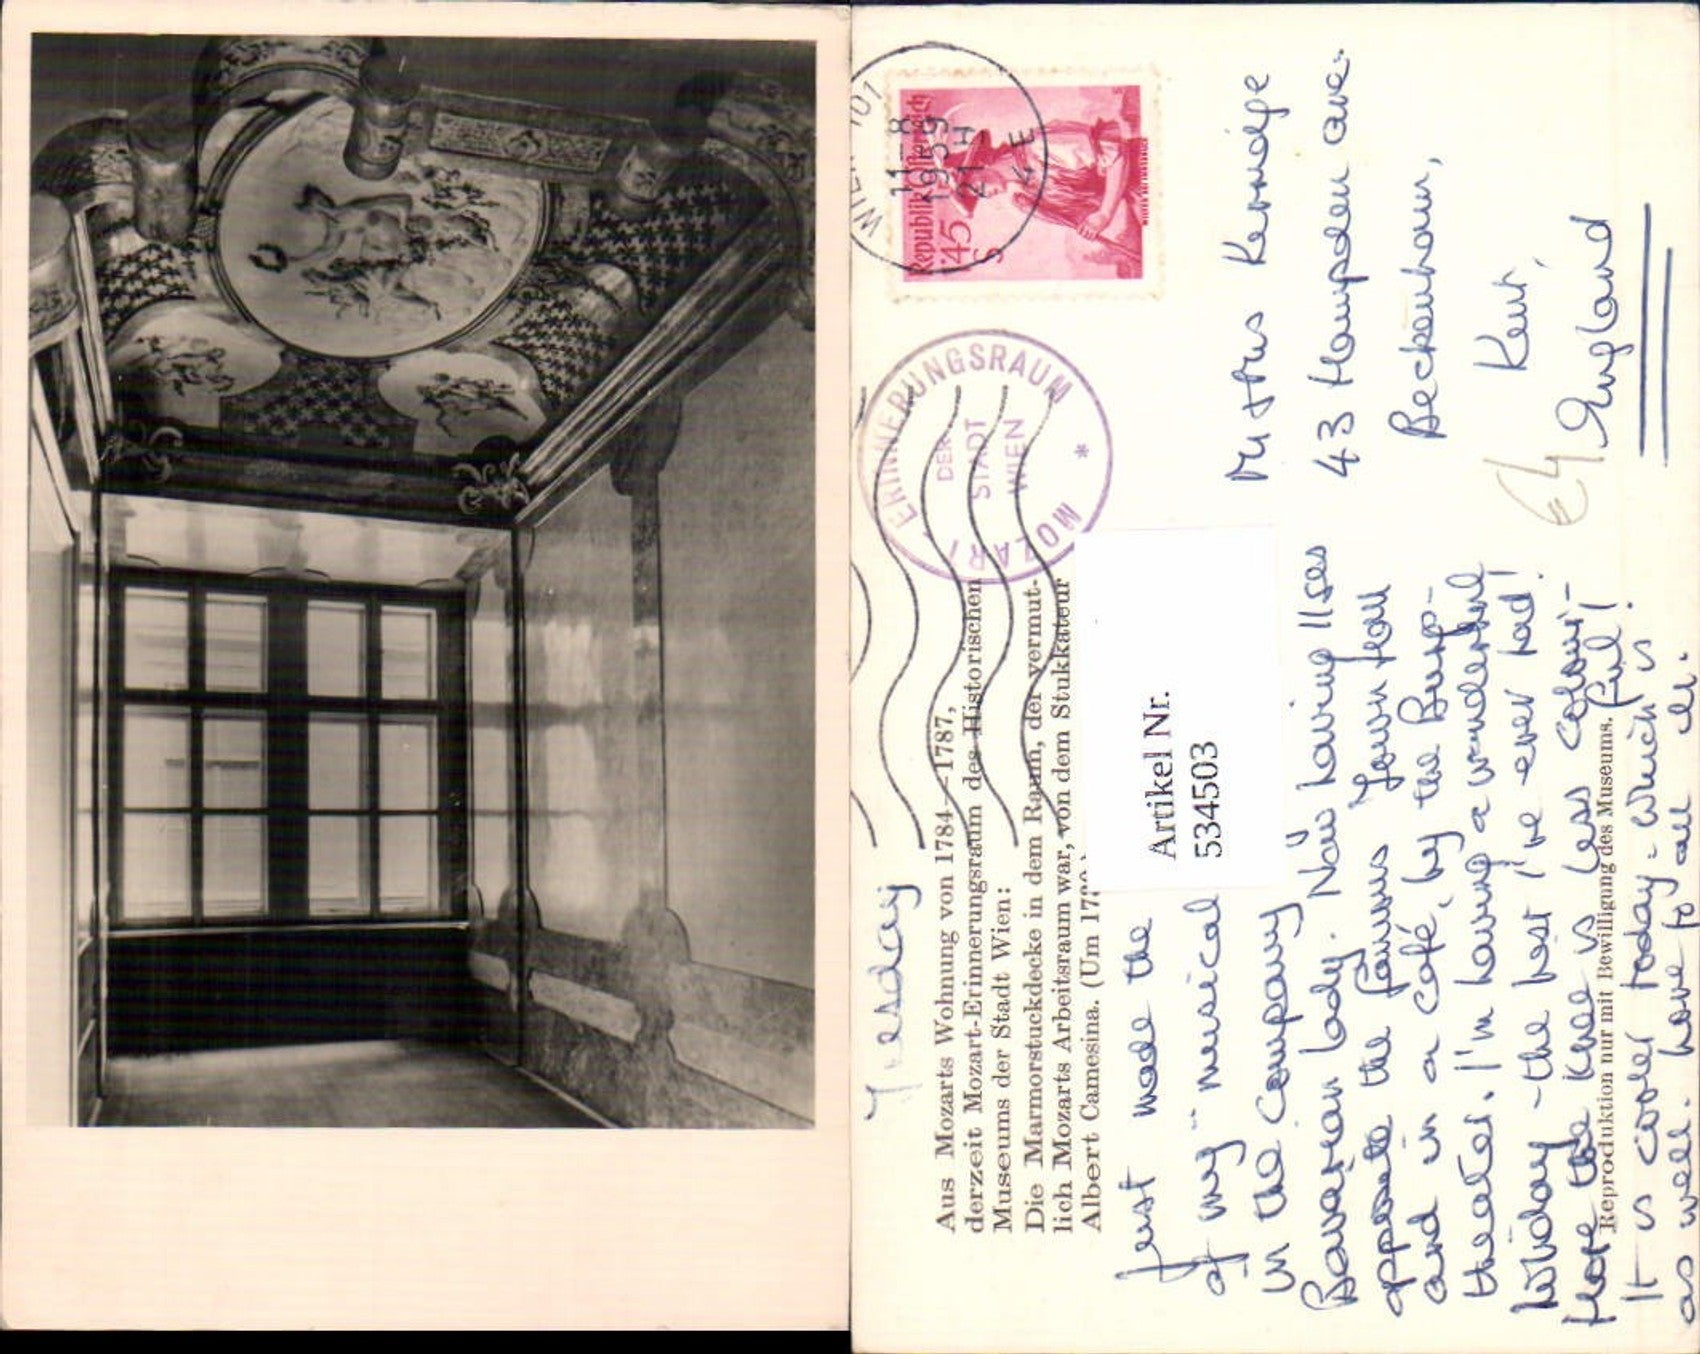 WIEN 101
11–8
1959
21 H
4 E
Republik Österreich
45
S
ERINNERUNGSRAUM
MOZART
*
DER
STADT
WIEN
Tuesday
Aus Mozarts Wohnung von 1784—1787,
derzeit Mozart-Erinnerungsraum des Historischen
Museums der Stadt Wien:
Die Marmorstuckdecke in dem Raum, der vermut-
lich Mozarts Arbeitsraum war, von dem Stukkateur
Albert Camesina. (Um 173
Artikel Nr.
534503
Just made the
of my "musical
in the company
Bavarian lady. Now having
opposite the famous Town Hall
and in a café, by the Burg-
theater. I'm having a wonderful
holiday - the best I've ever had!
hope the knee is less colour-
ful!
It is cooler today - which is
as well. Love to all
Reproduktion nur mit Bewilligung des Museums.
43 Hampden Ave.
Beckenham,
Kent,
England